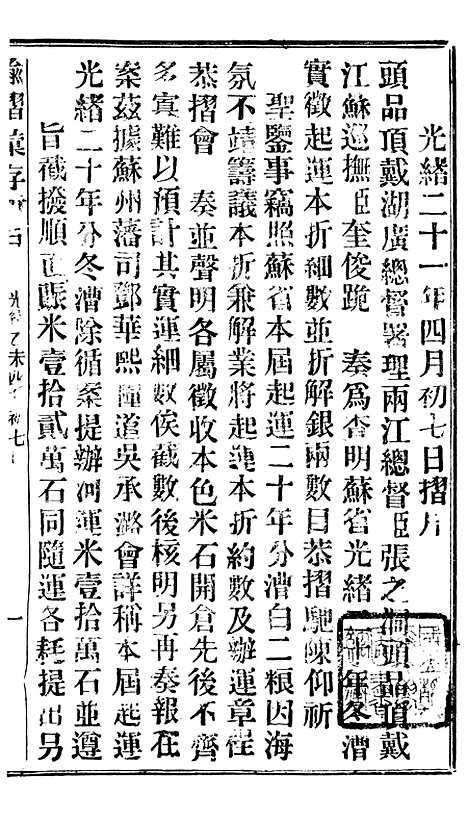 光緒二十一年四月初七日摺片
頭品頂戴湖廣總督署理兩江總督臣張之洞頭品頂戴
江蘇巡撫臣奎俊跪　奏爲查明蘇省光緒二十年冬漕
實徵起運本折細數並折解銀兩數目恭摺馳陳仰祈
聖鑒事竊照蘇省本屆起運二十年分漕白二粮因海
氛不靖籌議本折兼解業將起運本折約數及辦運章程
恭摺會　奏並聲明各屬徵收本色米石開倉先後不齊
多寡難以預計其實運細數俟截數後核明另再奏報在
案茲據蘇州藩司鄧華熙糧道吳承潞會詳稱本屆起運
光緒二十年分冬漕除循案提辦河運米壹拾萬石並遵
旨截撥順直賑米壹拾貳萬石同隨運各耗提出另
諭摺彙存
光緒乙未四月初七日
一